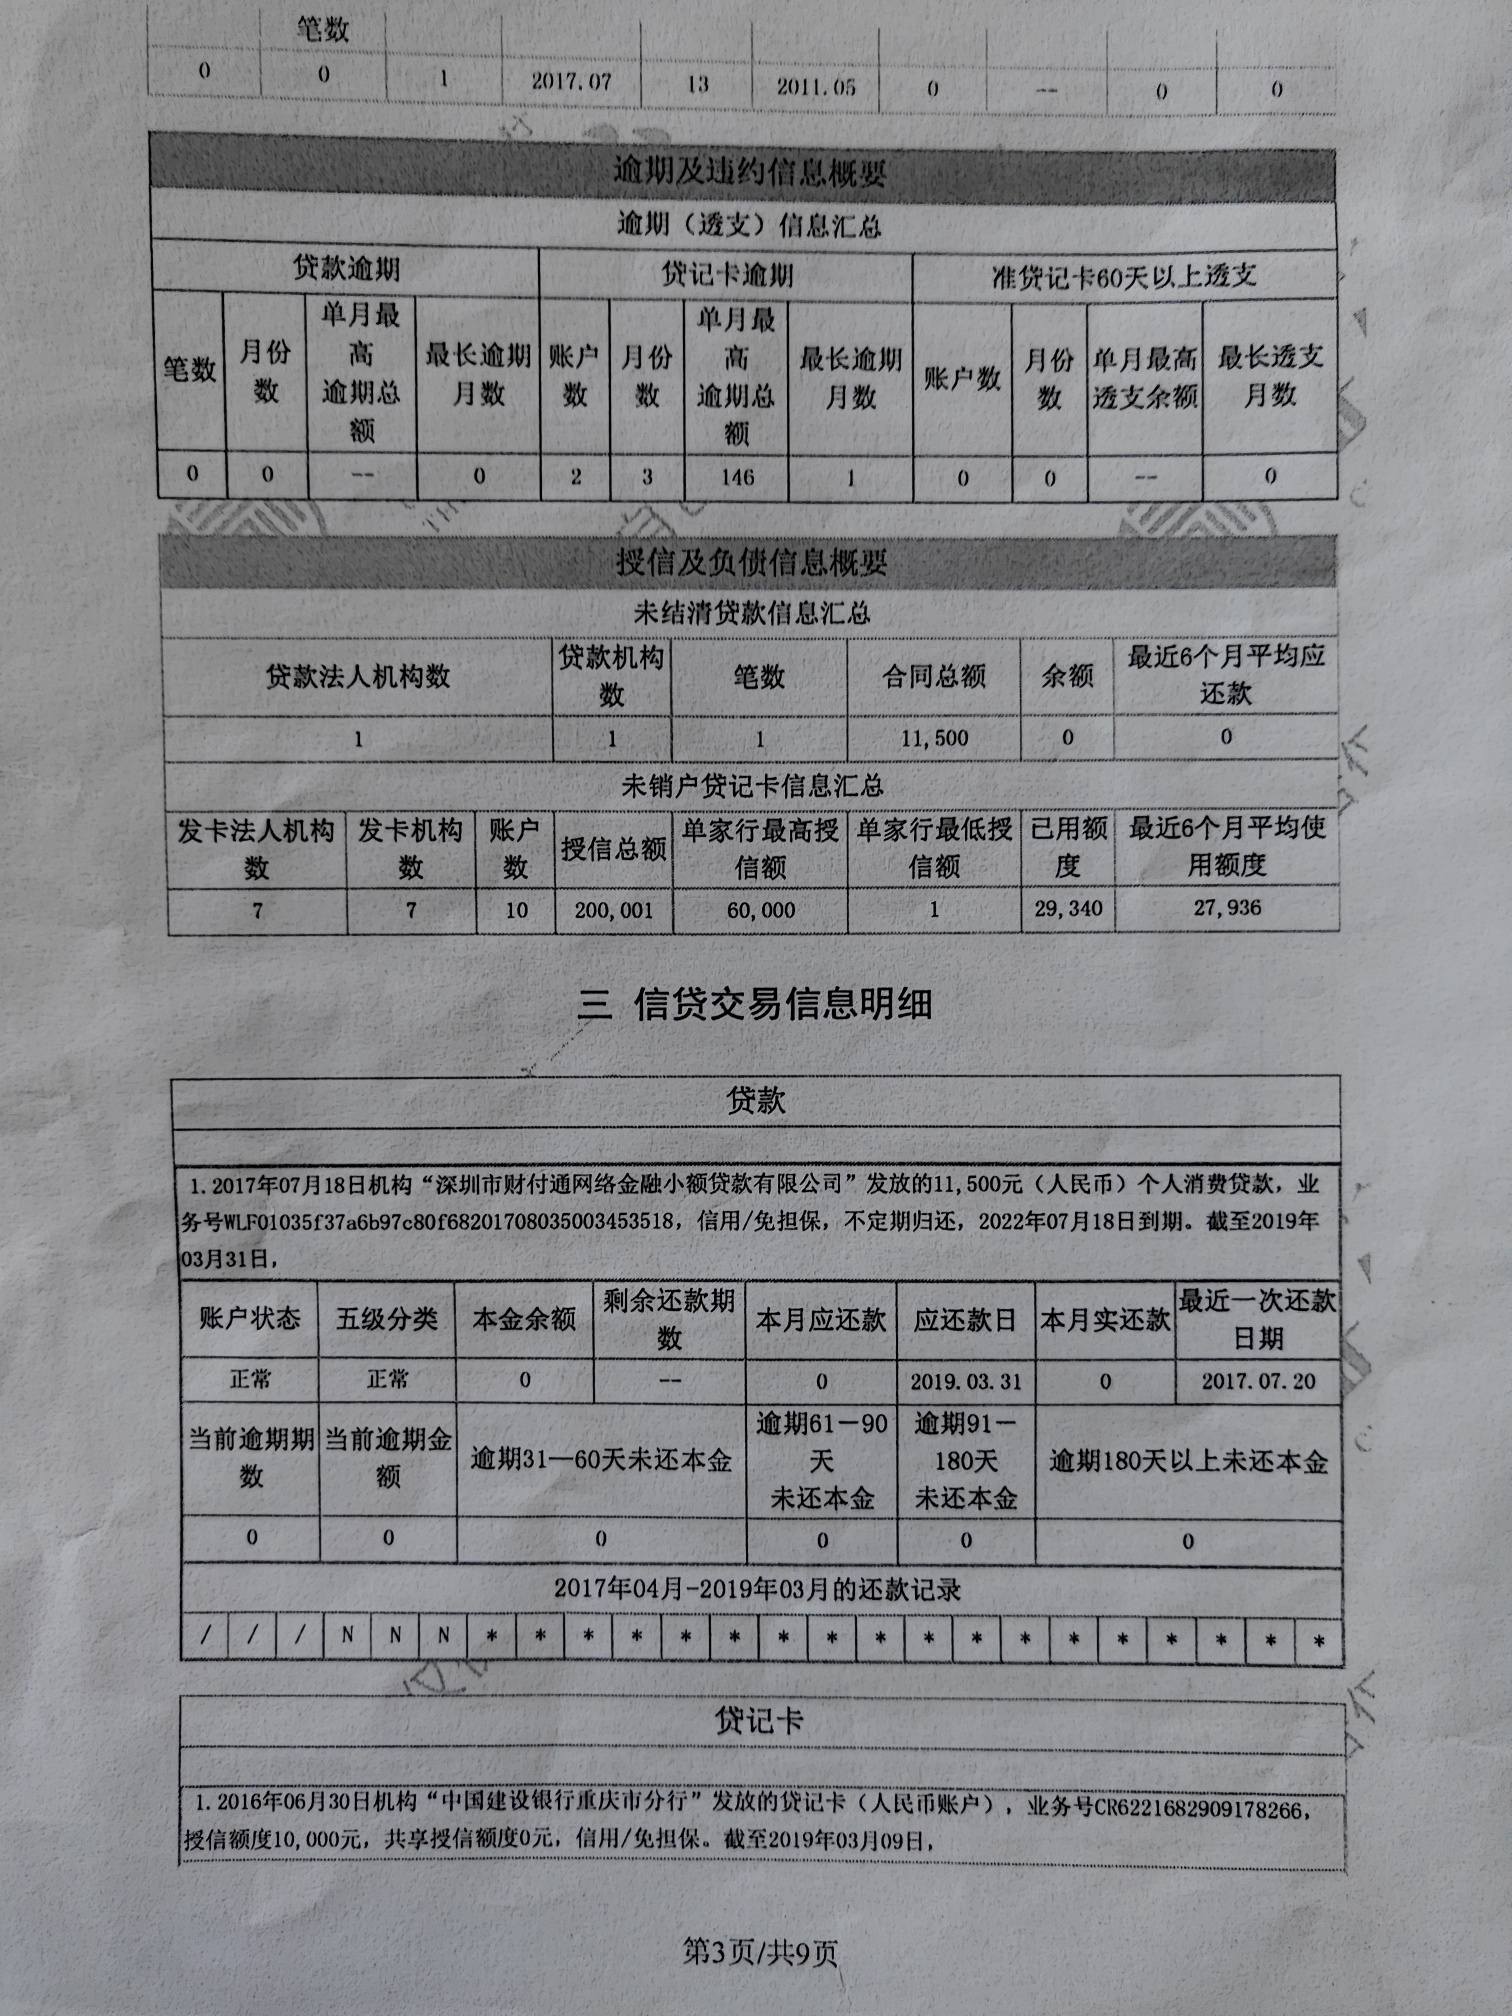 笔数
0 0 1 2017.07 13 2011.05 0 -- 0 0
逾期及违约信息概要
逾期（透支）信息汇总
贷款逾期 贷记卡逾期 准贷记卡60天以上透支
笔数 月份数 单月最高逾期总额 最长逾期月数 账户数 月份数 单月最高逾期总额 最长逾期月数 账户数 月份数 单月最高透支余额 最长透支月数
0 0 -- 0 2 3 146 1 0 0 -- 0
授信及负债信息概要
未结清贷款信息汇总
贷款法人机构数 贷款机构数 笔数 合同总额 余额 最近6个月平均应还款
1 1 1 11,500 0 0
未销户贷记卡信息汇总
发卡法人机构数 发卡机构数 账户数 授信总额 单家行最高授信额 单家行最低授信额 已用额度 最近6个月平均使用额度
7 7 10 200,001 60,000 1 29,340 27,936
三 信贷交易信息明细
贷款
1.2017年07月18日机构“深圳市财付通网络金融小额贷款有限公司”发放的11,500元（人民币）个人消费贷款，业
务号WLF01035f37a6b97c80f68201708035003453518，信用/免担保，不定期归还，2022年07月18日到期。截至2019年
03月31日，
账户状态 五级分类 本金余额 剩余还款期数 本月应还款 应还款日 本月实还款 最近一次还款日期
正常 正常 0 -- 0 2019.03.31 0 2017.07.20
当前逾期期数 当前逾期金额 逾期31—60天未还本金 逾期61－90天未还本金 逾期91－180天未还本金 逾期180天以上未还本金
0 0 0 0 0 0
2017年04月-2019年03月的还款记录
/ / / N N N * * * * * * * * * * * * * * * * * *
贷记卡
1.2016年06月30日机构“中国建设银行重庆市分行”发放的贷记卡（人民币账户），业务号CR6221682909178266，
授信额度10,000元，共享授信额度0元，信用/免担保。截至2019年03月09日，
第3页/共9页